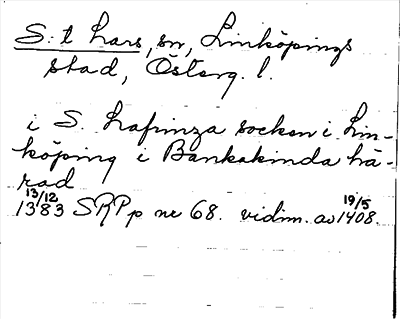 S:t Lars, sn, Linköpings
stad, Österg. l.
i S. Lafrinza socken i Lin-
köping i Bankakinda hä-
rad
13/12 1383 SRPp nr 68. vidim. av 19/5 1408.